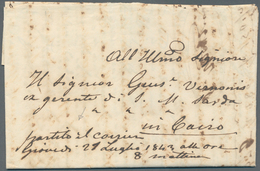 All Illmo Signiore
Il Signior Gius.a Vernonis
ex gerente di S. M. Sarda
in Cairo
partito il corrier
Giovedi 27 Luglio 1843 alle ore
8 mattina